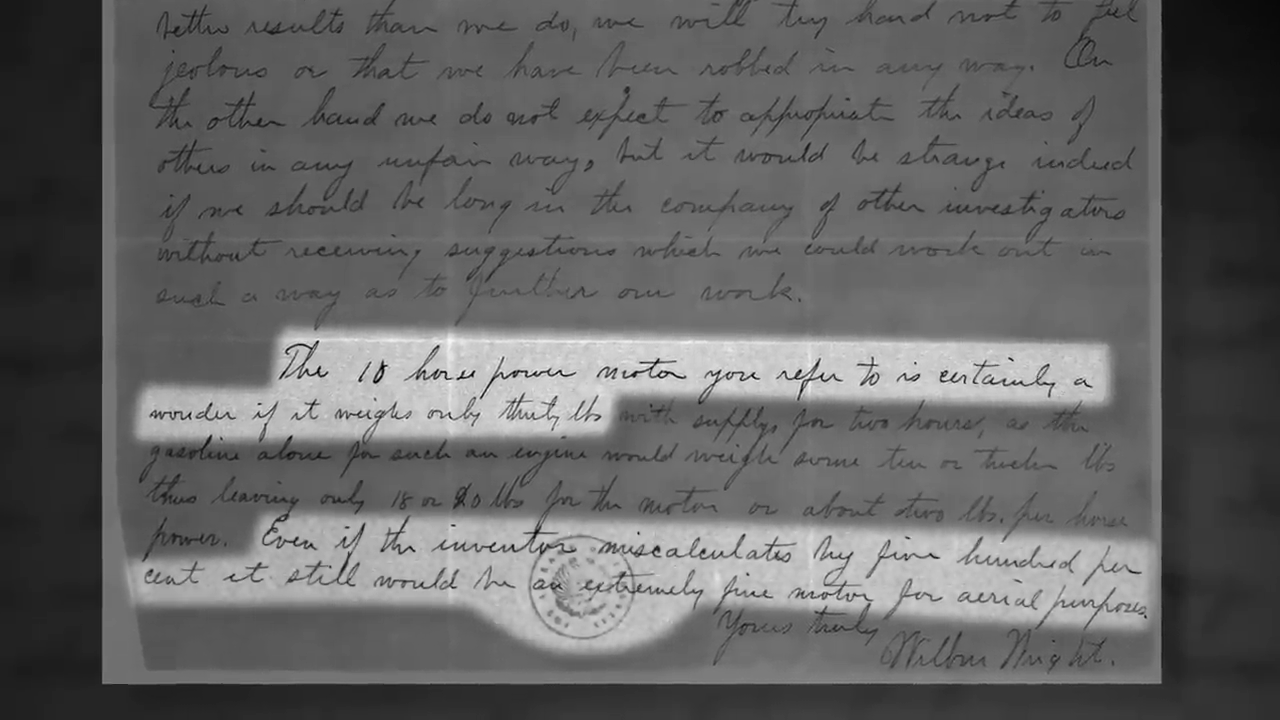 better results than we do, we will try hard not to feel
jealous or that we have been robbed in any way. On
the other hand we do not expect to appropriate the ideas of
others in any unfair way, but it would be strange indeed
if we should be long in the company of other investigators
without receiving suggestions which we could work out in
such a way as to further our work.
The 10 horse power motor you refer to is certainly a
wonder if it weighs only thirty lbs with supply for two hours, as the
gasoline alone for such an engine would weigh some ten or twelve lbs
thus leaving only 18 or 20 lbs for the motor or about two lbs. per horse
power. Even if the inventor miscalculates by five hundred per
cent it still would be an extremely fine motor for aerial purposes.
Yours truly
Wilbur Wright.